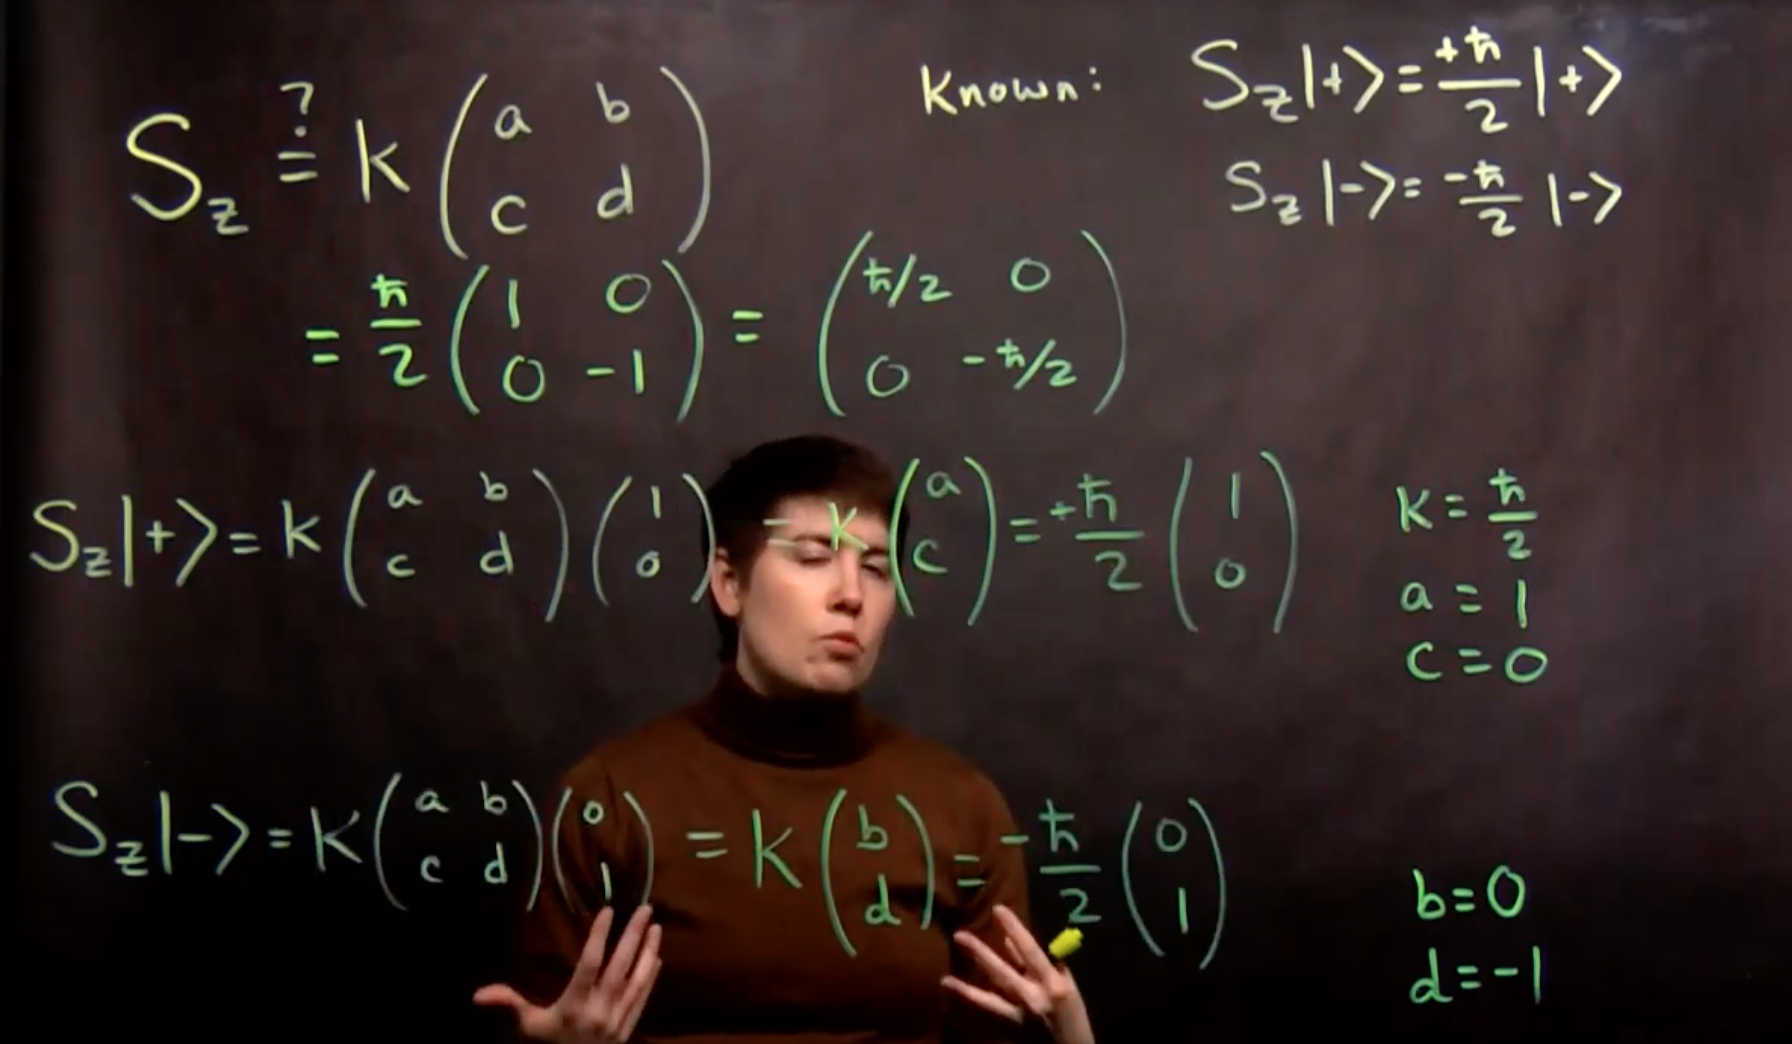 S_z ≟ k ( a b ; c d )
Known: S_z|+> = +ħ/2 |+>
S_z|-> = -ħ/2 |->
= ħ/2 ( 1 0 ; 0 -1 ) = ( ħ/2 0 ; 0 -ħ/2 )
S_z|+> = k ( a b ; c d ) ( 1 ; 0 ) = k ( a ; c ) = +ħ/2 ( 1 ; 0 )
k = ħ/2
a = 1
c = 0
S_z|-> = k ( a b ; c d ) ( 0 ; 1 ) = k ( b ; d ) = -ħ/2 ( 0 ; 1 )
b = 0
d = -1